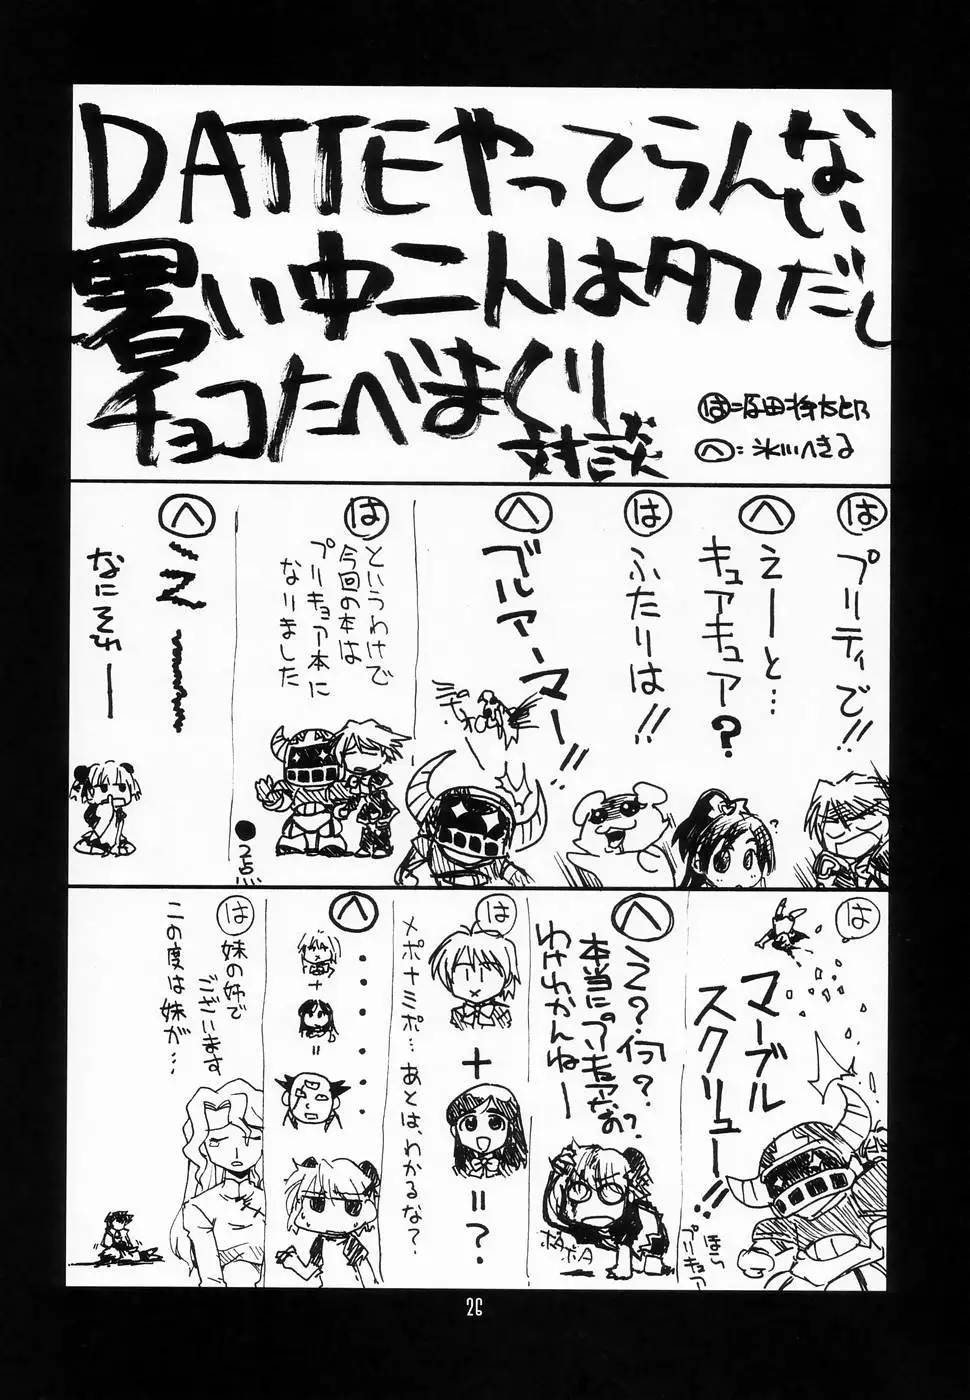 DATTEやってらんない
暑い中こんはタフだし
チョコたべまくり
対談
は=原田将太郎
へ:氷川へきる
は プリティで!!
へ えーと…
キュアキュア?
は ふたりは!!
へ ブルアーマー!!
は というわけで
今回の本は
プリキュア本に
なりました
●2点
へ え〜〜
なにそれー
は マーブル
スクリュー!!
ほら
プリキュア
へ え?何?
本当にプリキュアなの?
わけわかんねー
ポタ
ポタ
は + =?
メポナミポ…あとは、わかるな?
へ ・・・・・・・
+
=
は 妹の姉で
ございます
この度は妹が…
26